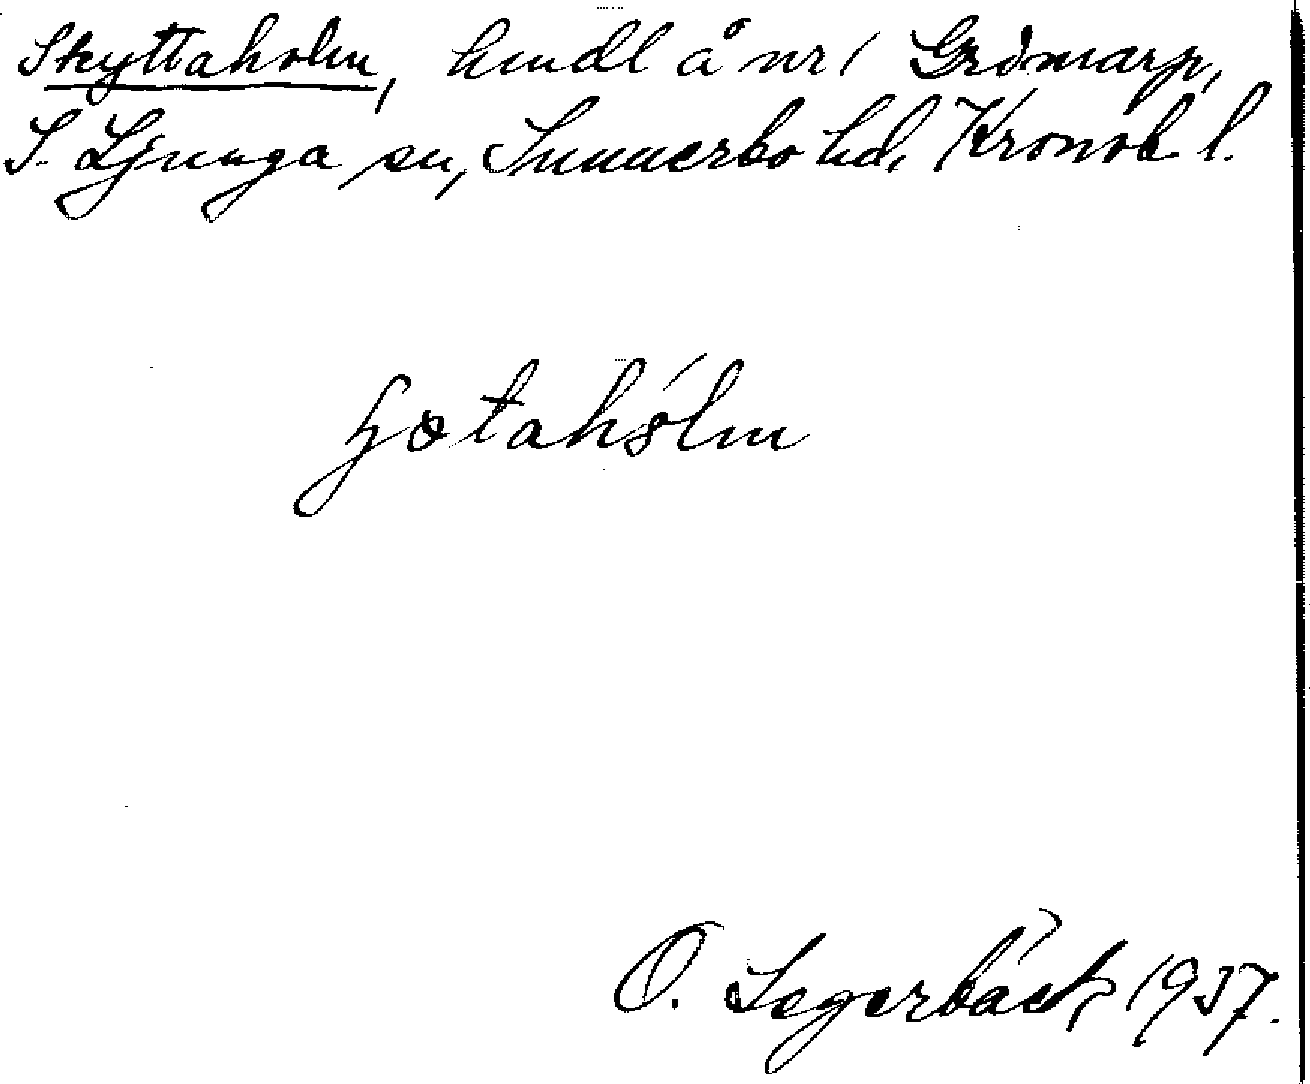 Skyttaholm, hmdl å nr 1 Grimarp,
S. Ljunga sn, Sunnerbo hd, Kronob. l.
ʃøtahólm
O. Segerbäck 1937.